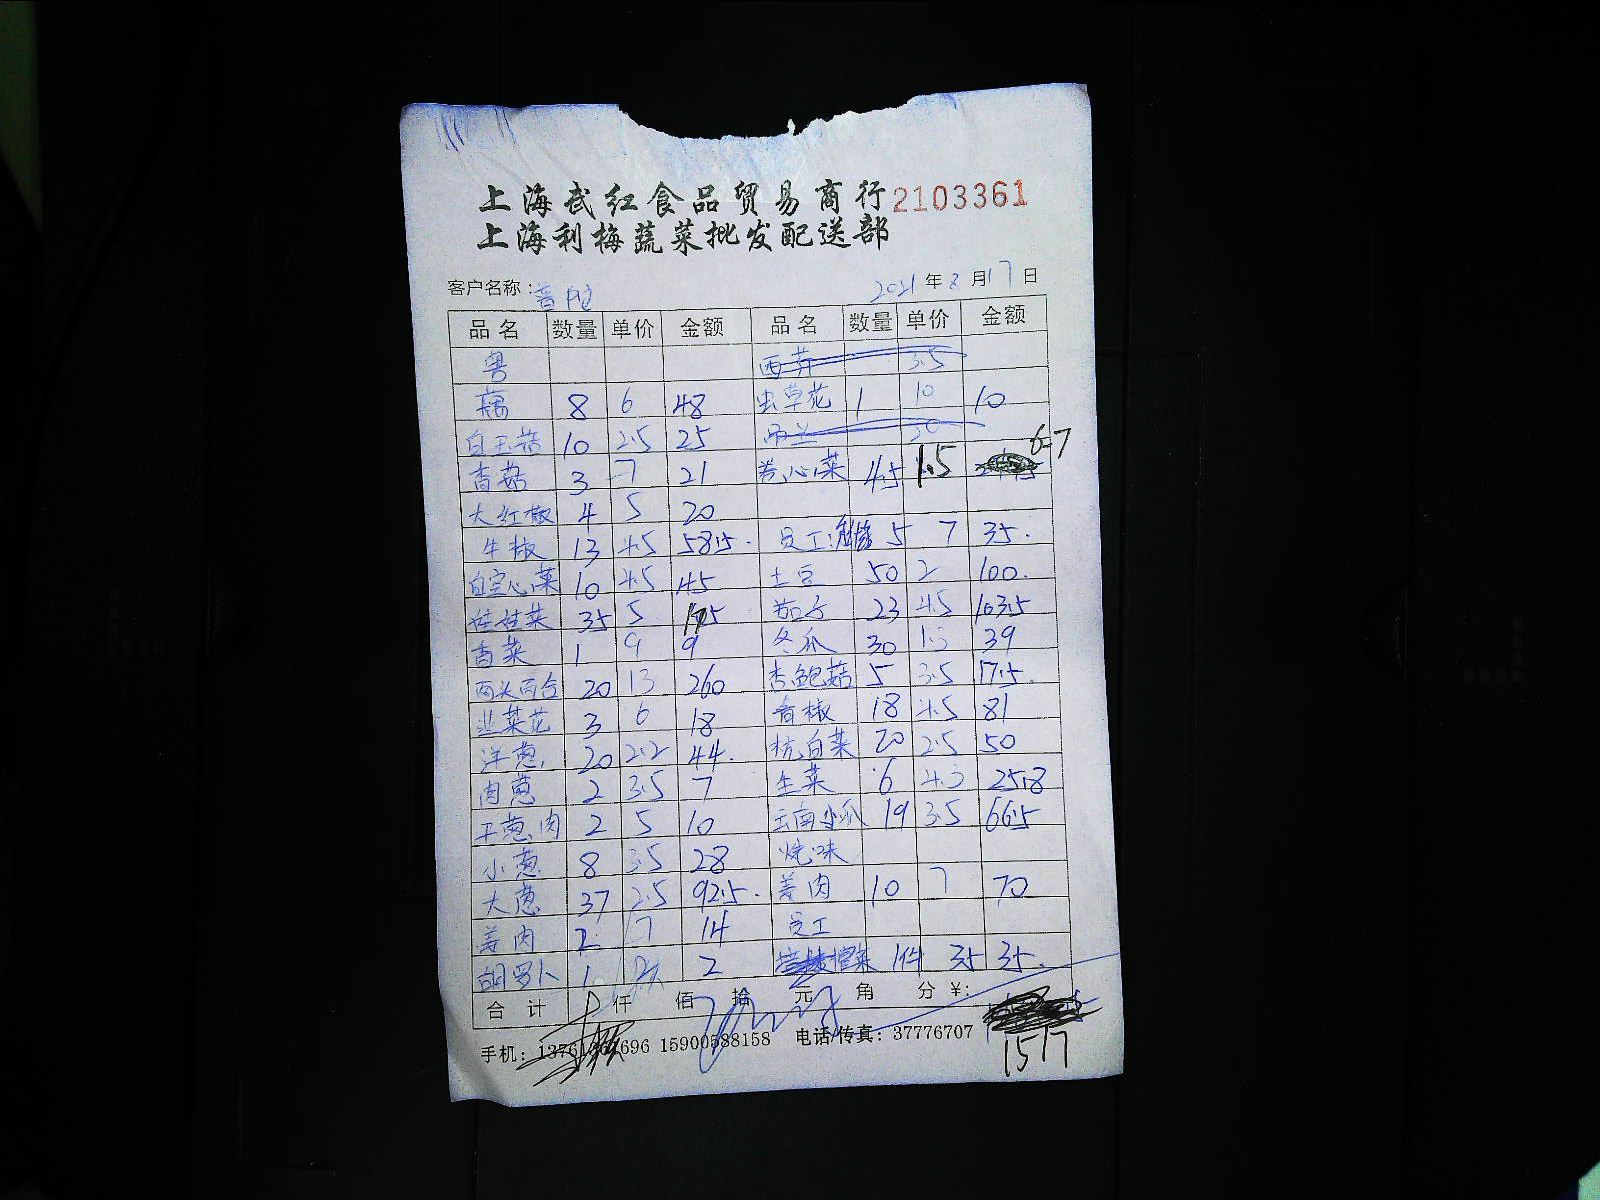 上海武红食品贸易商行 2103361
上海利梅蔬菜批发配送部
客户名称： 2021年8月17日
品名 数量 单价 金额 品名 数量 单价 金额
粤 西芹 3.5
藕 8 6 48 虫草花 1 10 10
白玉菇 10 2.5 25 西兰
香菇 3 7 21 卷心菜 4.5 1.5 6.7
大红椒 4 5 20
牛椒 13 4.5 58.5 员工: 5 7 35.
白空心菜 10 4.5 45 土豆 50 2 100.
娃娃菜 35 5 175 茄子 23 4.5 103.5
香菜 1 9 9 冬瓜 30 1.3 39
两头百合 20 13 260 杏鲍菇 5 3.5 17.5.
韭菜花 3 6 18 青椒 18 4.5 81
洋葱 20 2.2 44. 杭白菜 20 2.5 50
肉葱 2 3.5 7 生菜 6 4.3 25.8
干葱肉 2 5 10 云南小瓜 19 3.5 66.5
小葱 8 3.5 28 烧味
大葱 37 2.5 92.5. 姜肉 10 7 70
姜肉 2 7 14 员工
胡罗卜 1 2 2 菜 1件 35 35.
合计 仟 佰 拾 元 角 分 ¥:
手机： 696 15900588158 电话/传真：37776707
1517